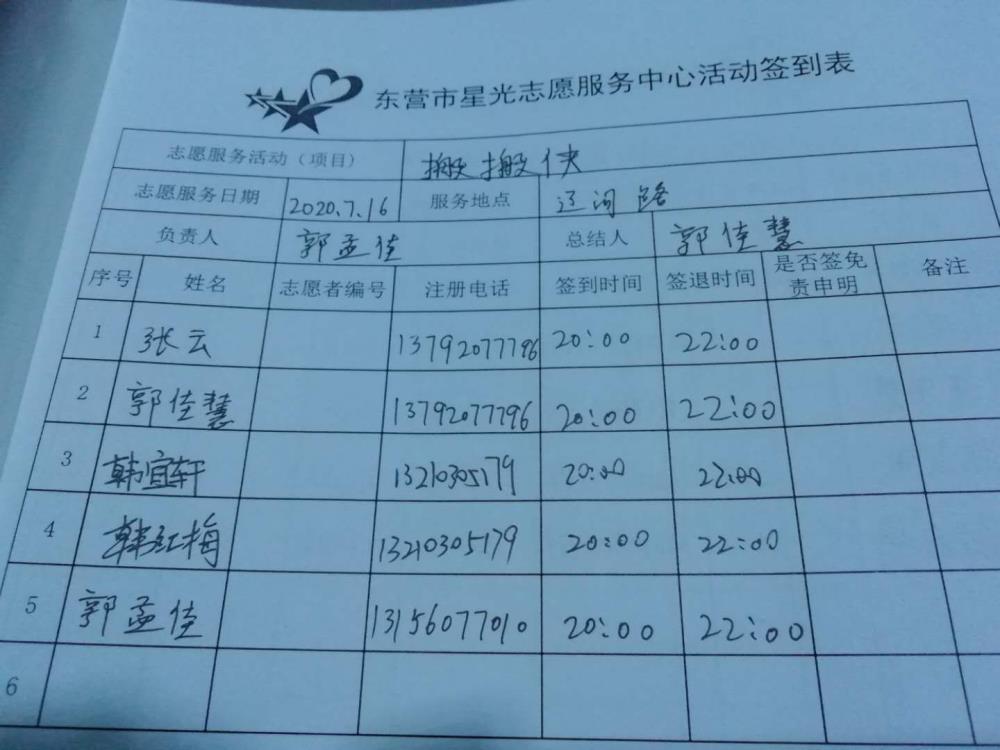 东营市星光志愿服务中心活动签到表
志愿服务活动（项目） 搬搬侠
志愿服务日期 2020.7.16 服务地点 辽河路
负责人 郭孟佳 总结人 郭佳慧
序号 姓名 志愿者编号 注册电话 签到时间 签退时间 是否签免责申明 备注
1 张云 13792077796 20:00 22:00
2 郭佳慧 13792077796 20:00 22:00
3 韩宜轩 13210305179 20:00 22:00
4 韩红梅 13210305179 20:00 22:00
5 郭孟佳 13156077010 20:00 22:00
6